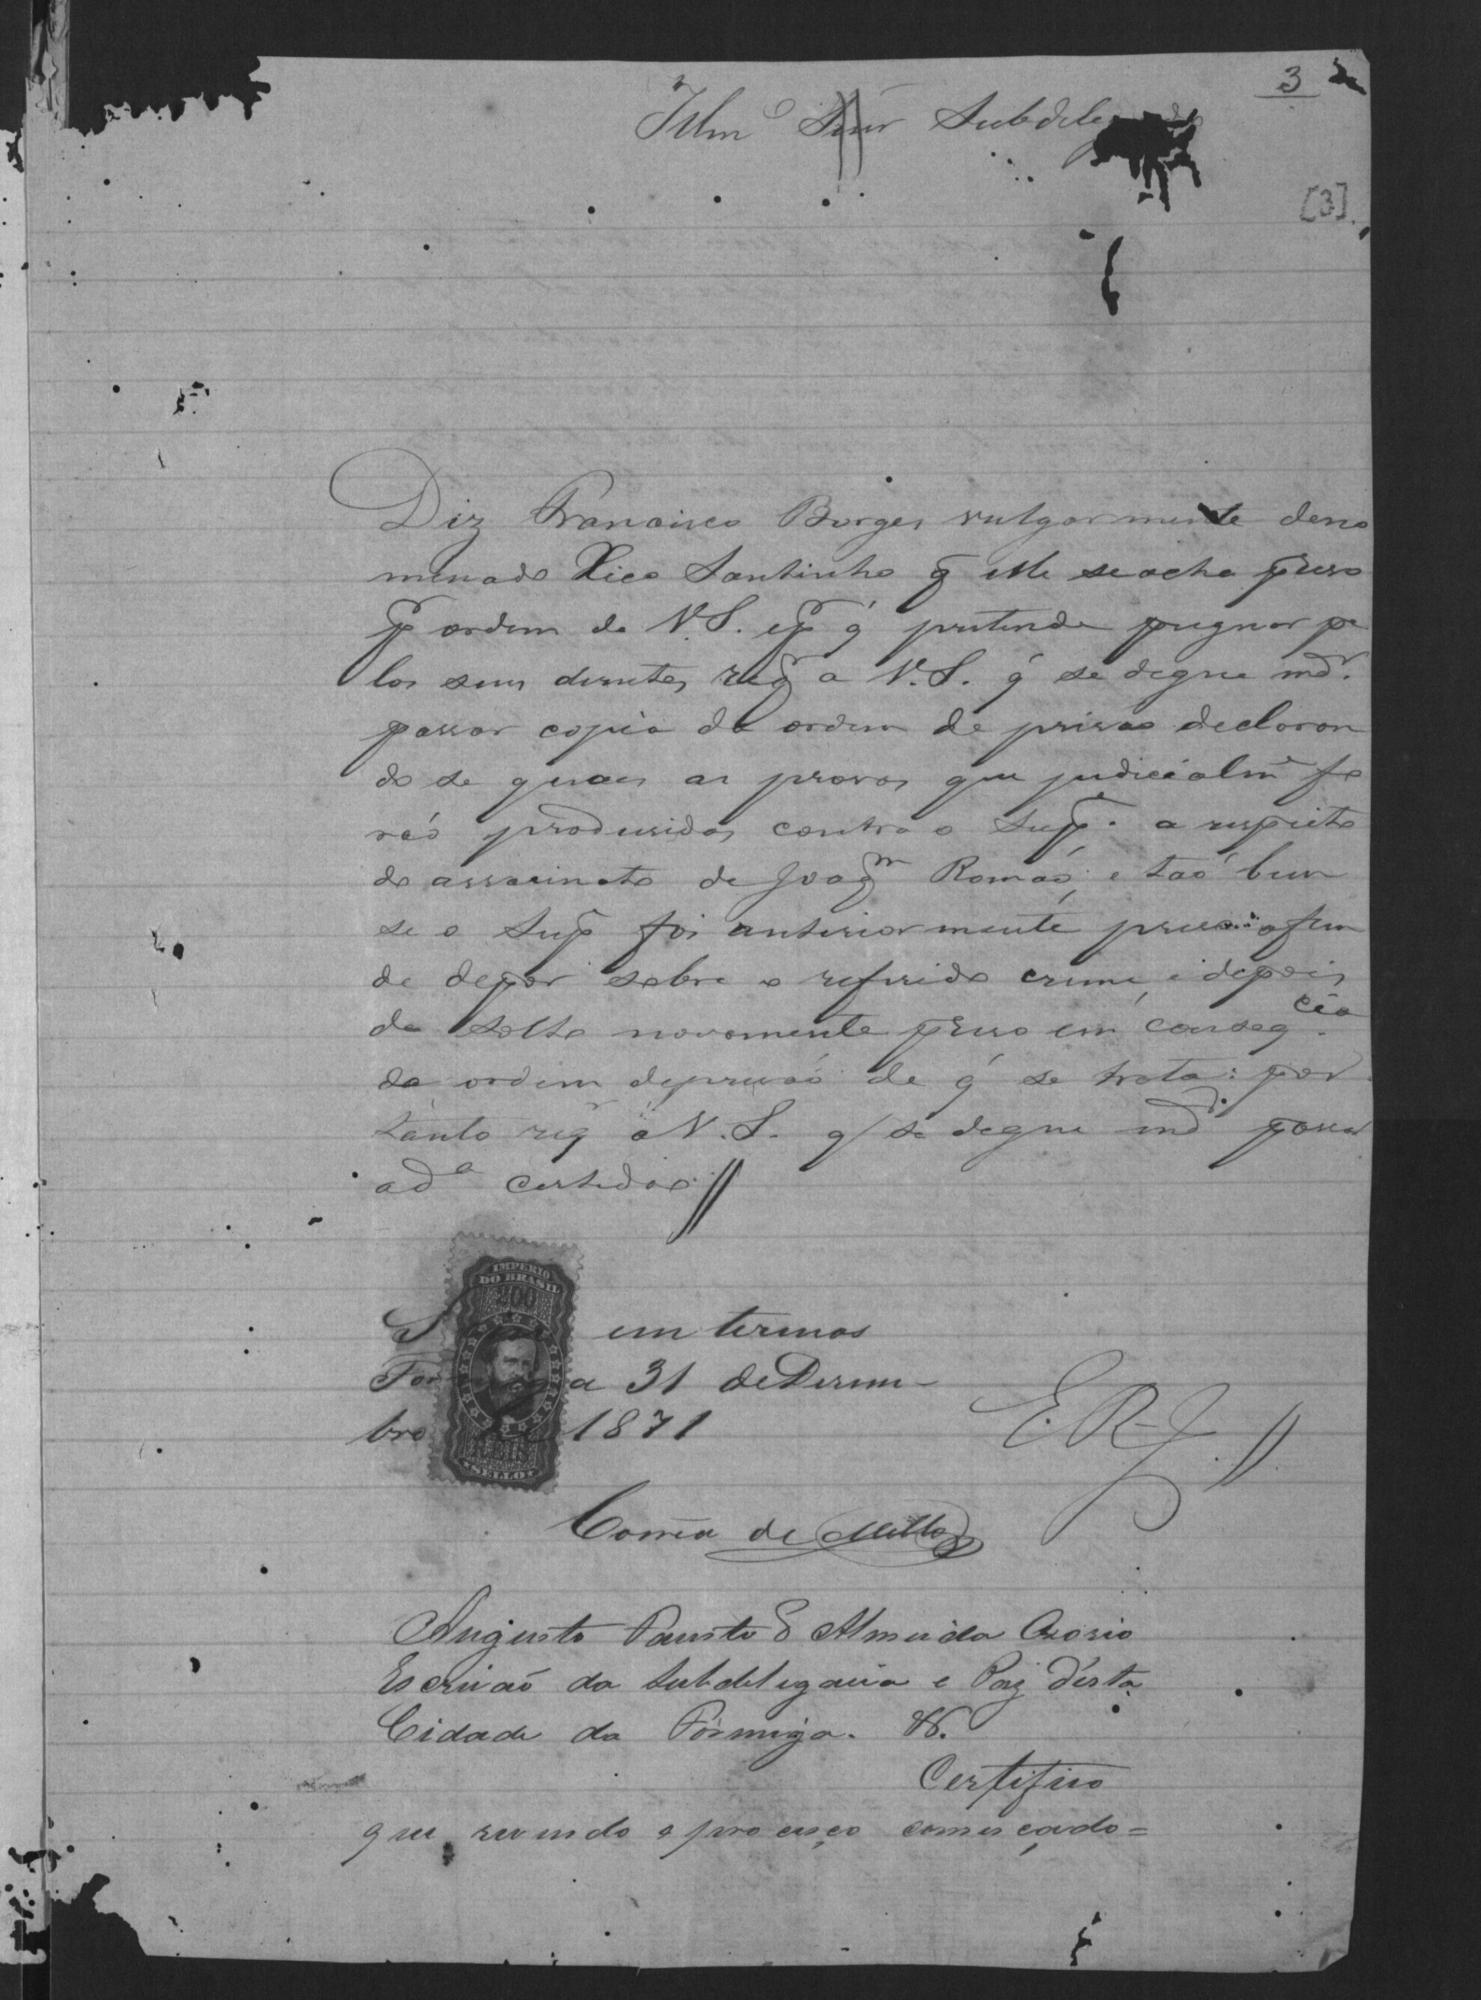 3
Illm.º Snr Subdeleg do
[3]
Diz Francisco Borges vulgarmente deno
minado Xico Santinho q̃ elle se acha prezo
p̃ ordem de V.S. e p̃ q' pretende pugnar pe
los seus direitos, req̃ a V.S. q' se degne md.r
passar copia da ordem de prisao declaran
do se quaes as provas que judicialm.e fo
rão produsidas contra o Sup̃.e a respeito
do assacinato de Joaq.m Romaó, e taó bem
se o Sup̃ foi anteriormente preso afim
de depor sobre o referido crime, e depois
de solto novamente prezo em conseq.cia
da ordem deprizaó de q' se trata: por
tanto req.r a V.S. q' se degne md.r passar
ad.a certidao //
IMPERIO
DO BRASIL
200
SELLO
S em termos
Formiga 31 de Desem-
bro de 1871
E. R. J. //
Corrêa de Mello
Augusto Fausto d'Almeida Ozorio
Escrivaó da Subdelegacia e Paz d'esta
Cidade da Formiga. &.
Certifico
que revendo o proceço começado=